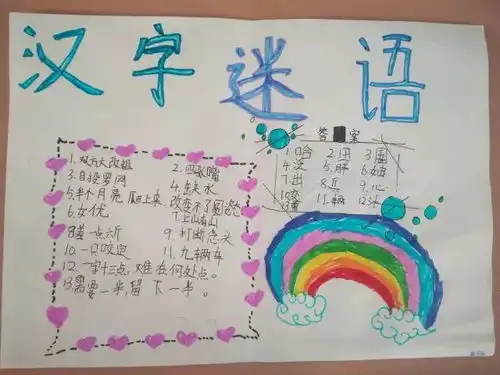 汉字谜语
1.双方大改组
2.四张嘴
3.自投罗网
4.缺水
5.半个月亮爬上来
改变不了
6.女优
7.上山有山
8.差一点斤
9.打断念头
10.一只咬定
11.九辆车
12.一字十三点,难在何处点。
13.需要一半,留下一半。
答案
1.哈 2.田 3.国
4.泛 5.胖 6.
7.出 8.近 9.心
10. 11.辆 12.